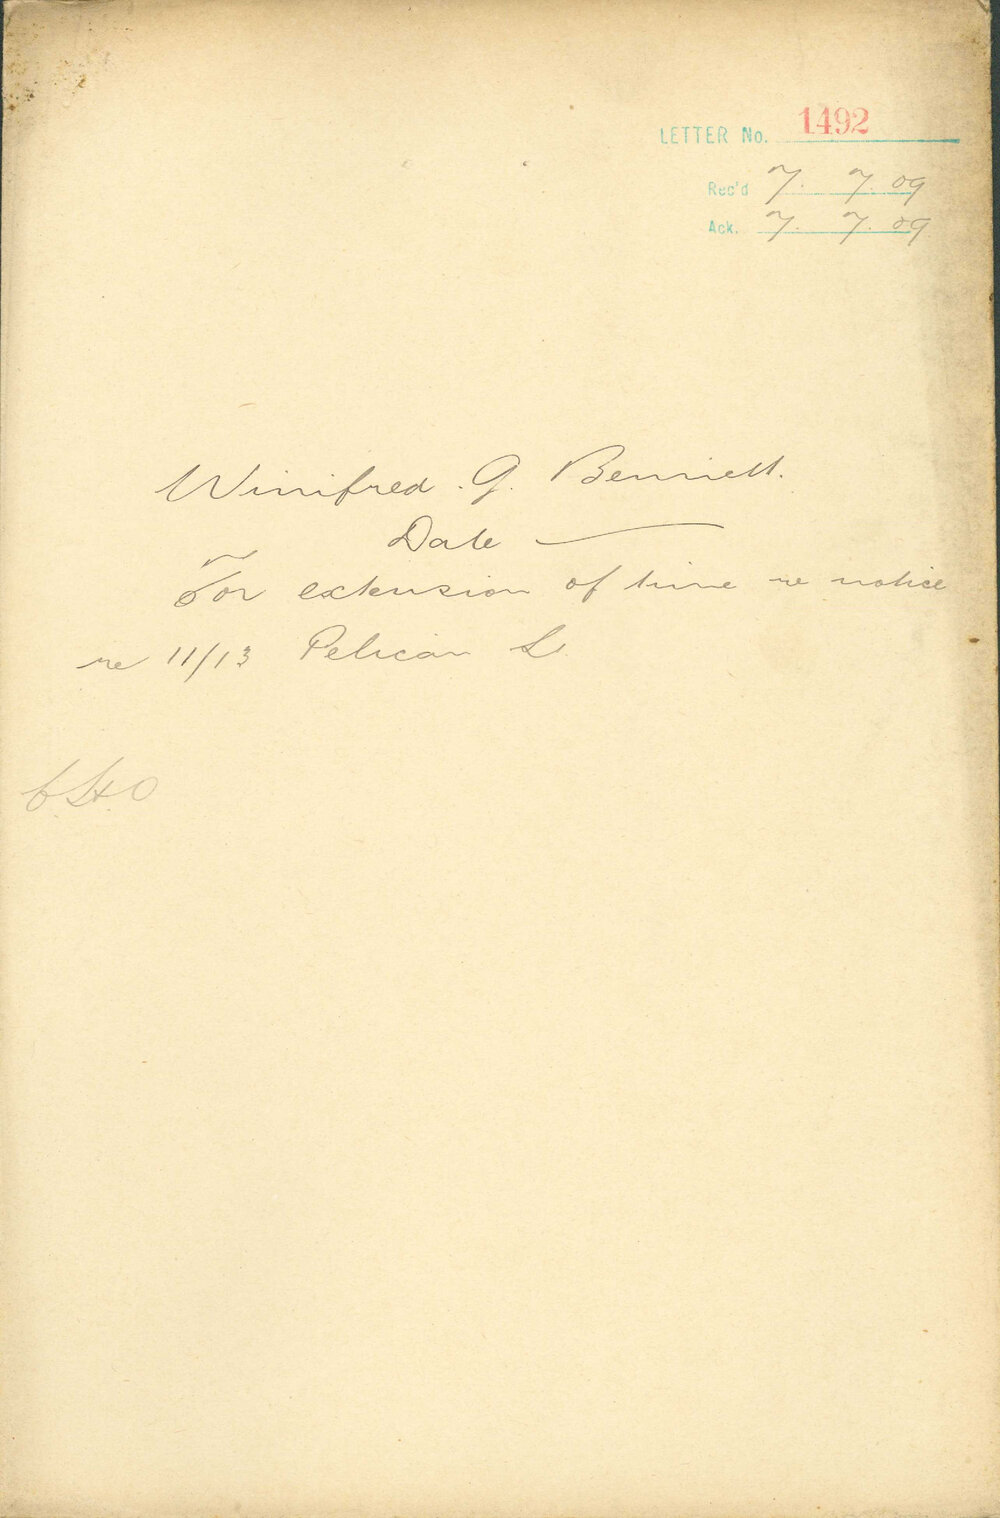 LETTER No. 1492
Rec'd 7. 7. 09
Ack. 7. 7. 09
Winifred. G. Bennett.
Date —
For extension of time re notice
re 11/13 Pelican St.